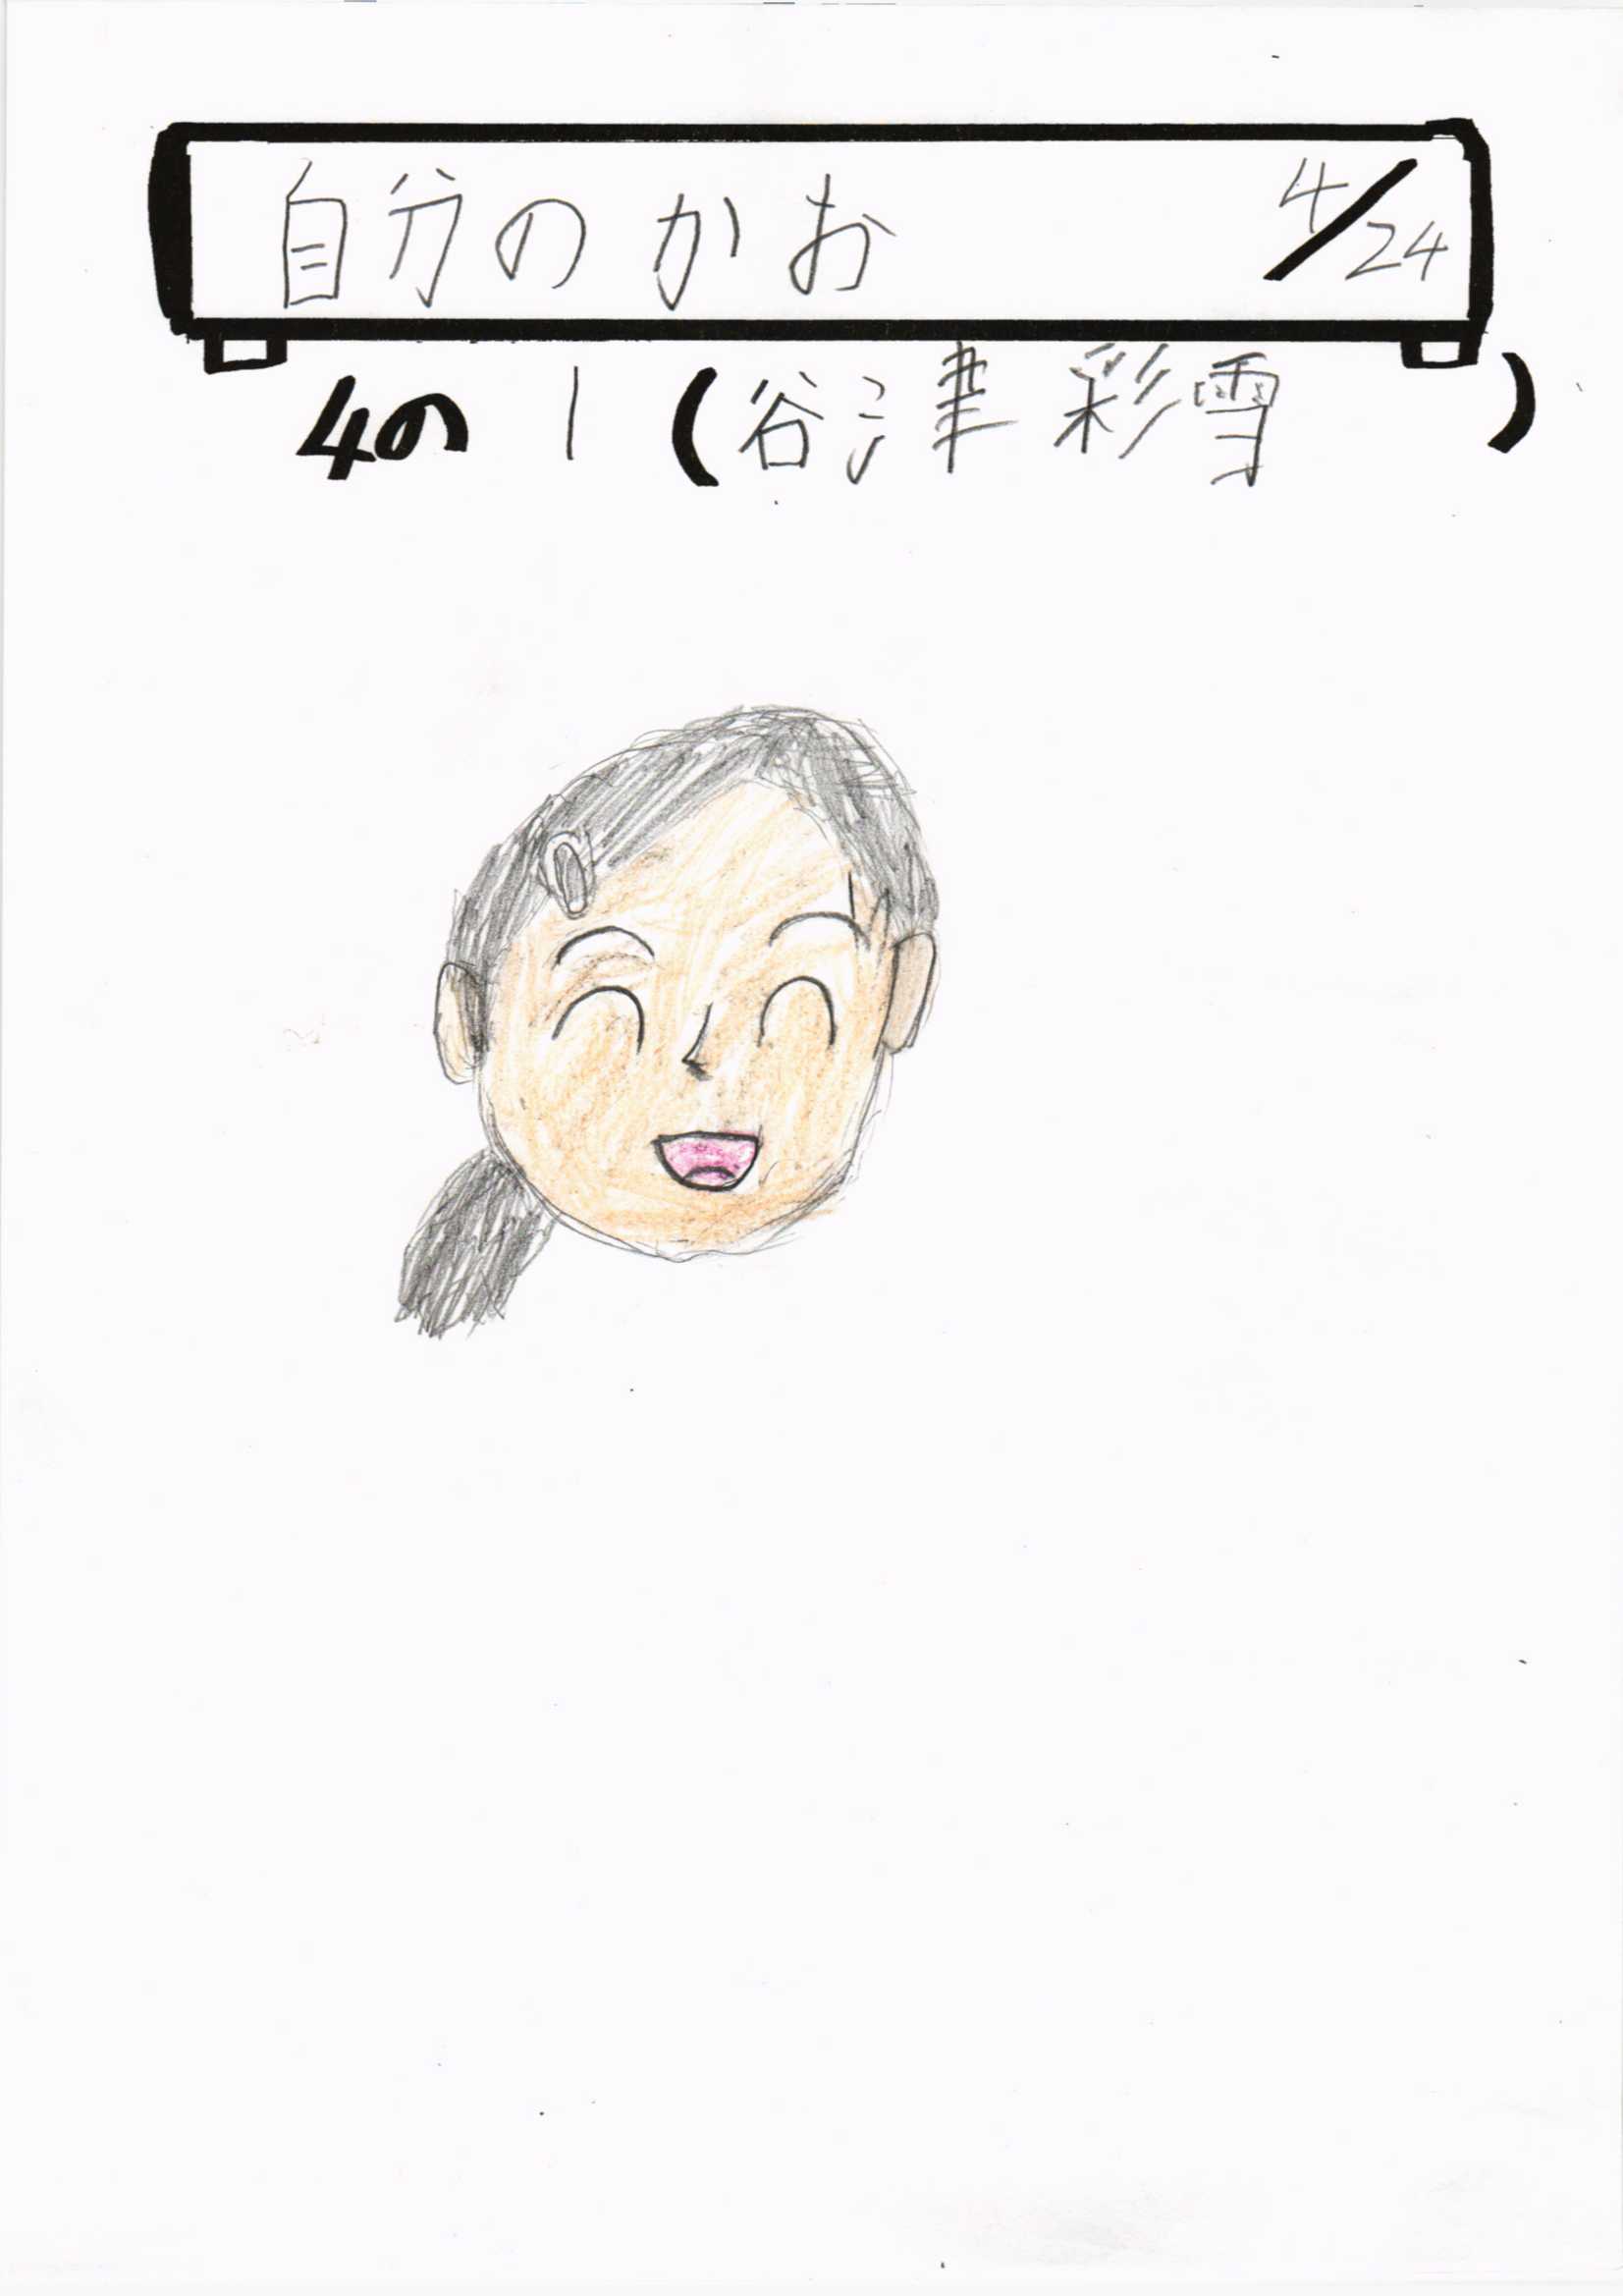 自分のかお 4/24
4の1(谷津彩雪)